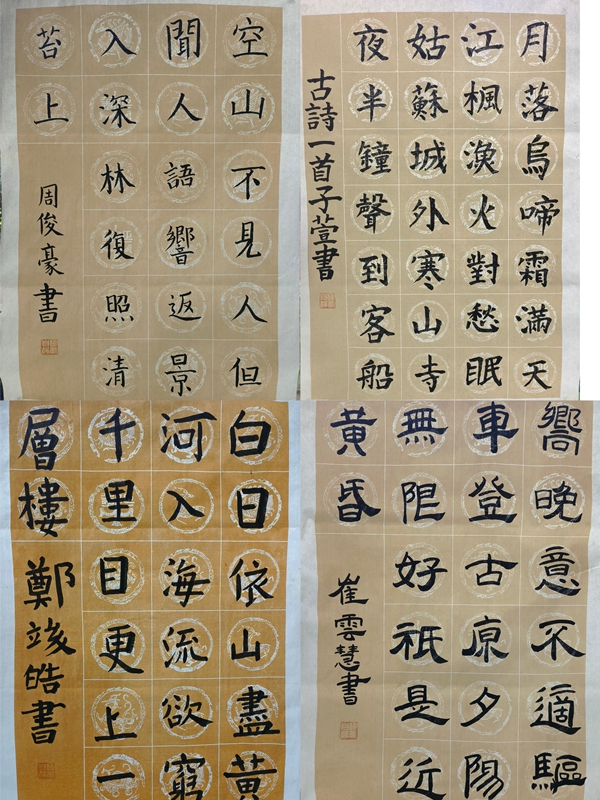 空山不見人但
聞人語響返景
入深林復照清
苔上
周俊豪書
月落烏啼霜滿天
江楓漁火對愁眠
姑蘇城外寒山寺
夜半鐘聲到客船
古詩一首子萱書
白日依山盡黃
河入海流欲窮
千里目更上一
層樓
鄭竣皓書
嚮晚意不適驅
車登古原夕陽
無限好祇是近
黃昏
崔雲慧書